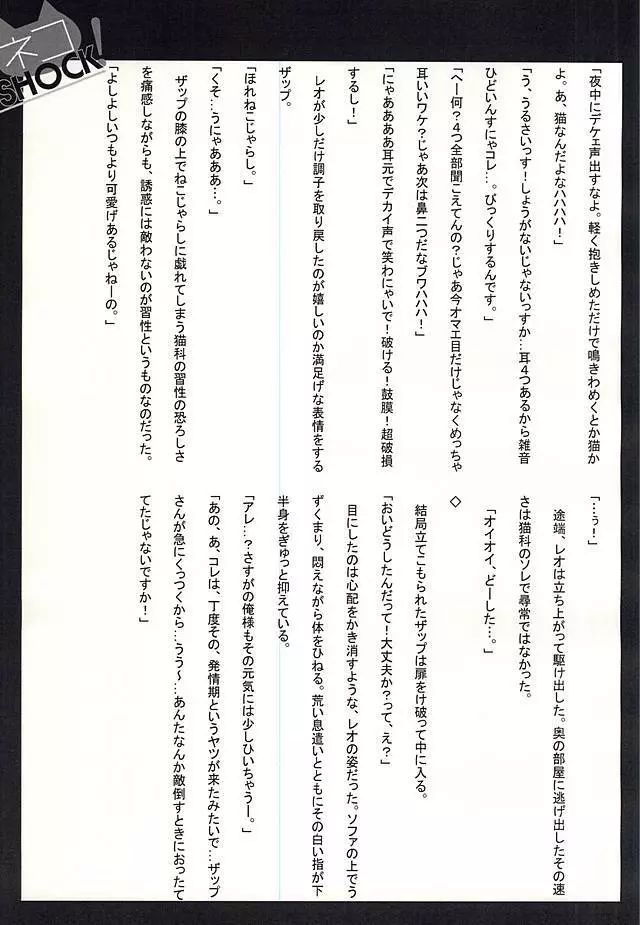 ネコ
SHOCK!
「夜中にデケェ声出すなよ。軽く抱きしめただけで鳴きわめくとか猫か
よ。あ、猫なんだよなハハハハ！」
「う、うるさいっす！しょうがないじゃないっすか…耳４つあるから雑音
ひどいんすにゃコレ…。びっくりするんです。」
「へー何？４つ全部聞こえてんの？じゃあ今オマエ目だけじゃなくめっちゃ
耳いいワケ？じゃあ次は鼻二つだなブワハハハ！」
「にゃああああ耳元でデカイ声で笑わにゃいで！破ける！鼓膜！超破損
するし！」
　レオが少しだけ調子を取り戻したのが嬉しいのか満足げな表情をする
ザップ。
「ほれねこじゃらし。」
「くそ…うにゃあああ…。」
　ザップの膝の上でねこじゃらしに戯れてしまう猫科の習性の恐ろしさ
を痛感しながらも、誘惑には敵わないのが習性というものなのだった。
「よしよしいつもより可愛げあるじゃねーの。」
「…ぅ！」
　途端、レオは立ち上がって駆け出した。奥の部屋に逃げ出したその速
さは猫科のソレで尋常ではなかった。
「オイオイ、どーした…。」
◇
　結局立てこもられたザップは扉をけ破って中に入る。
「おいどうしたんだって！大丈夫か？って、え？」
　目にしたのは心配をかき消すような、レオの姿だった。ソファの上でう
ずくまり、悶えながら体をひねる。荒い息遣いとともにその白い指が下
半身をぎゅっと抑えている。
「アレ…？さすがの俺様もその元気には少しひいちゃうー。」
「あの、あ、コレは、丁度その、発情期というヤツが来たみたいで…ザップ
さんが急にくっつくから…うう～…あんたなんか敵倒すときにおったて
てたじゃないですか！」